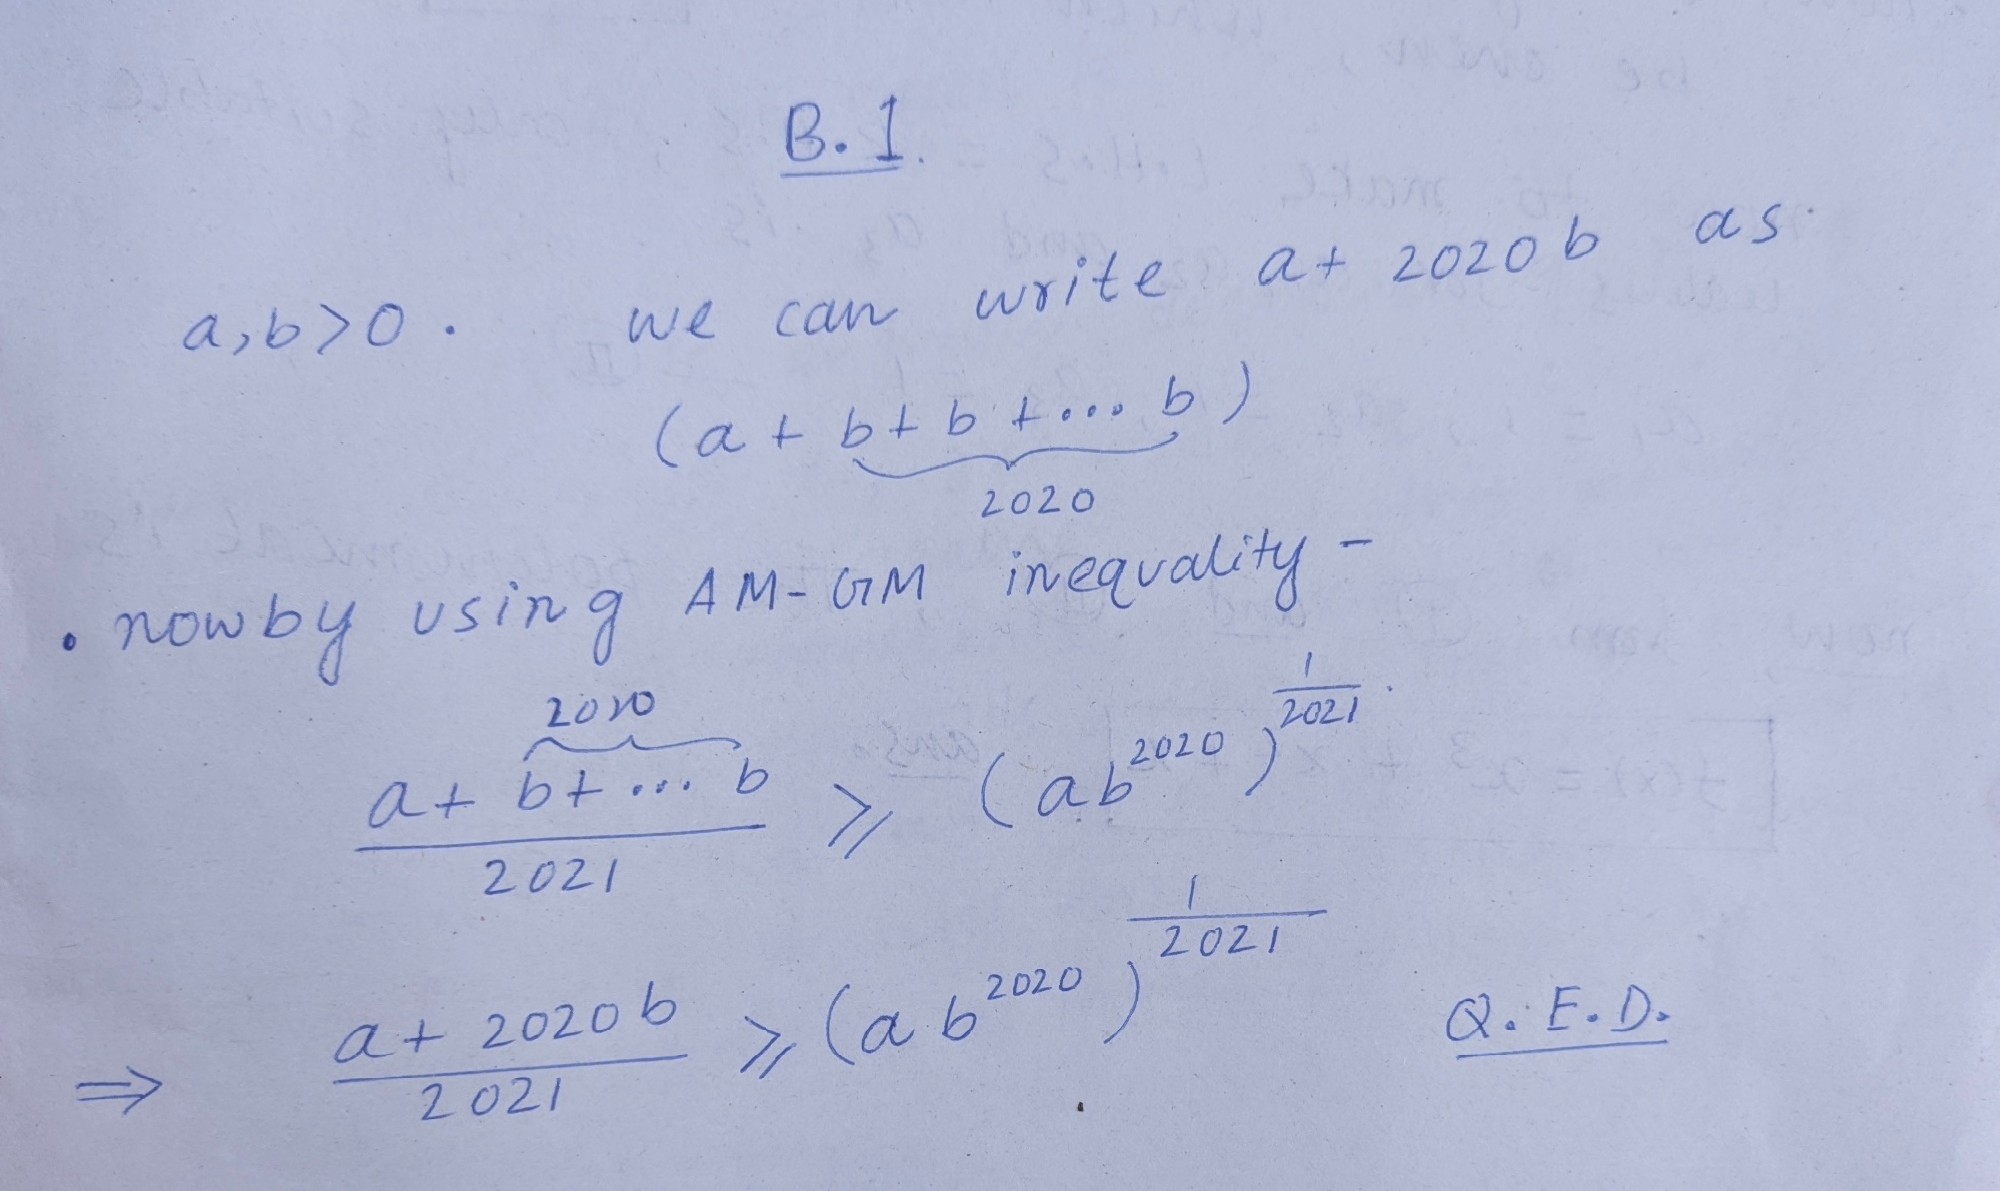 B.1.
a,b>0. we can write a + 2020b as
(a + b + b + ... b)
2020
. now by using AM-GM inequality -
2020
a + b + ... b / 2021 ⩾ (ab^2020)^(1/2021)
⇒ a + 2020b / 2021 ⩾ (ab^2020)^(1/2021) Q.E.D.